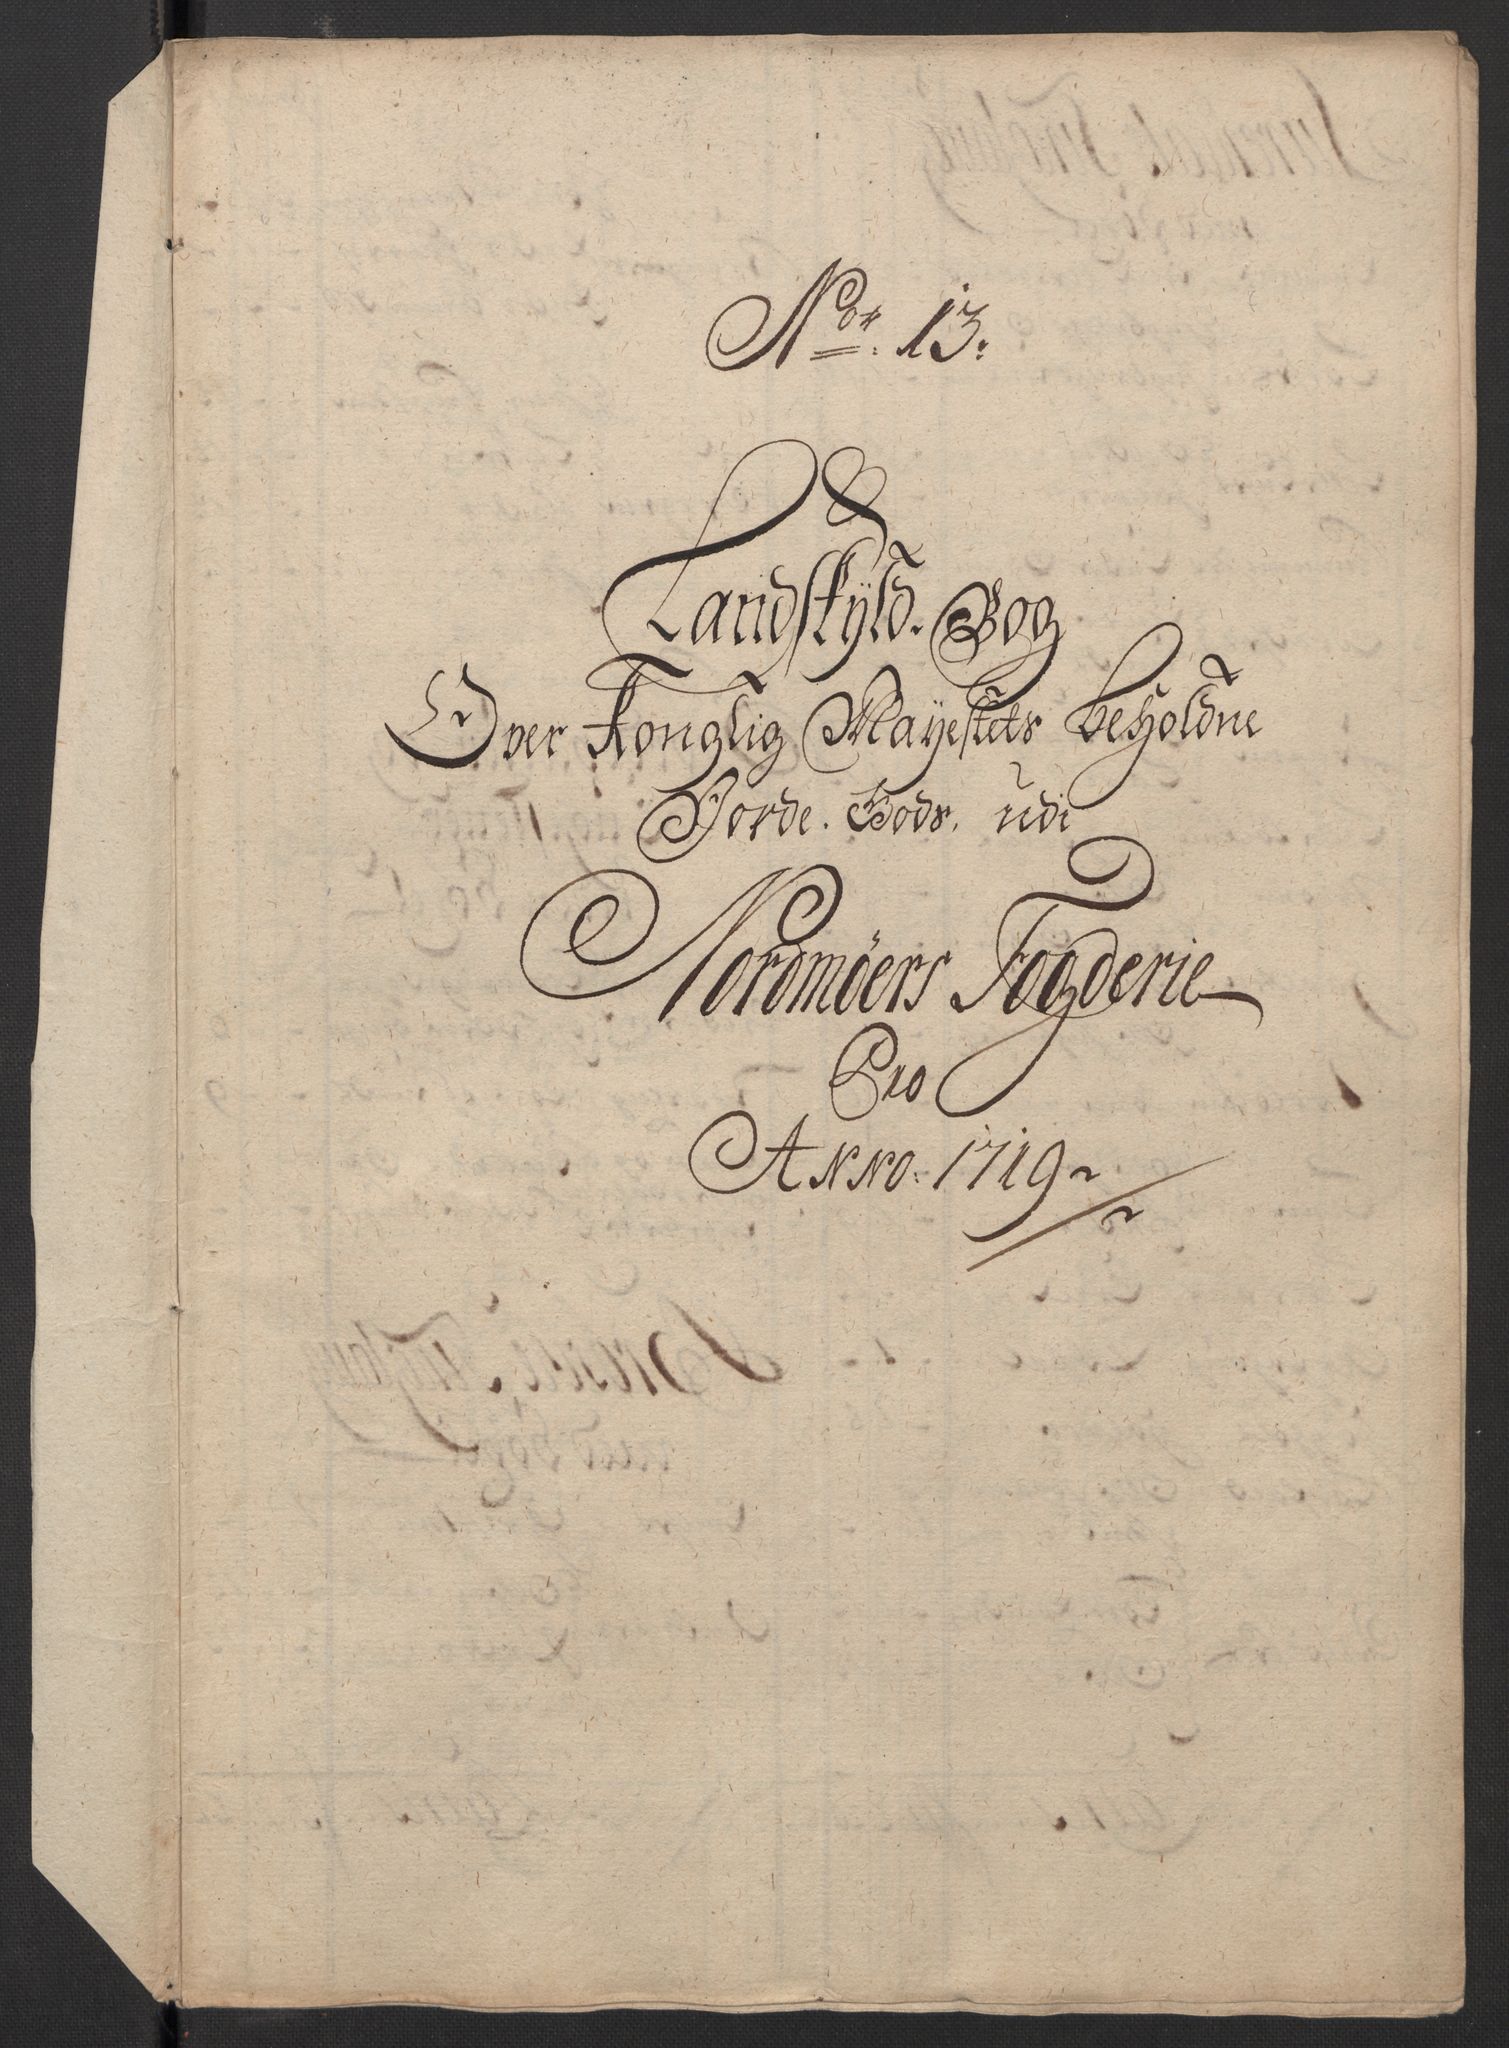 Nor. 13.
Landskyld. Bog
Over Konglig Mayestets beholdne
Jorde. Gods. udi
Nordmöers Fogderie
Pro
Anno. 1719